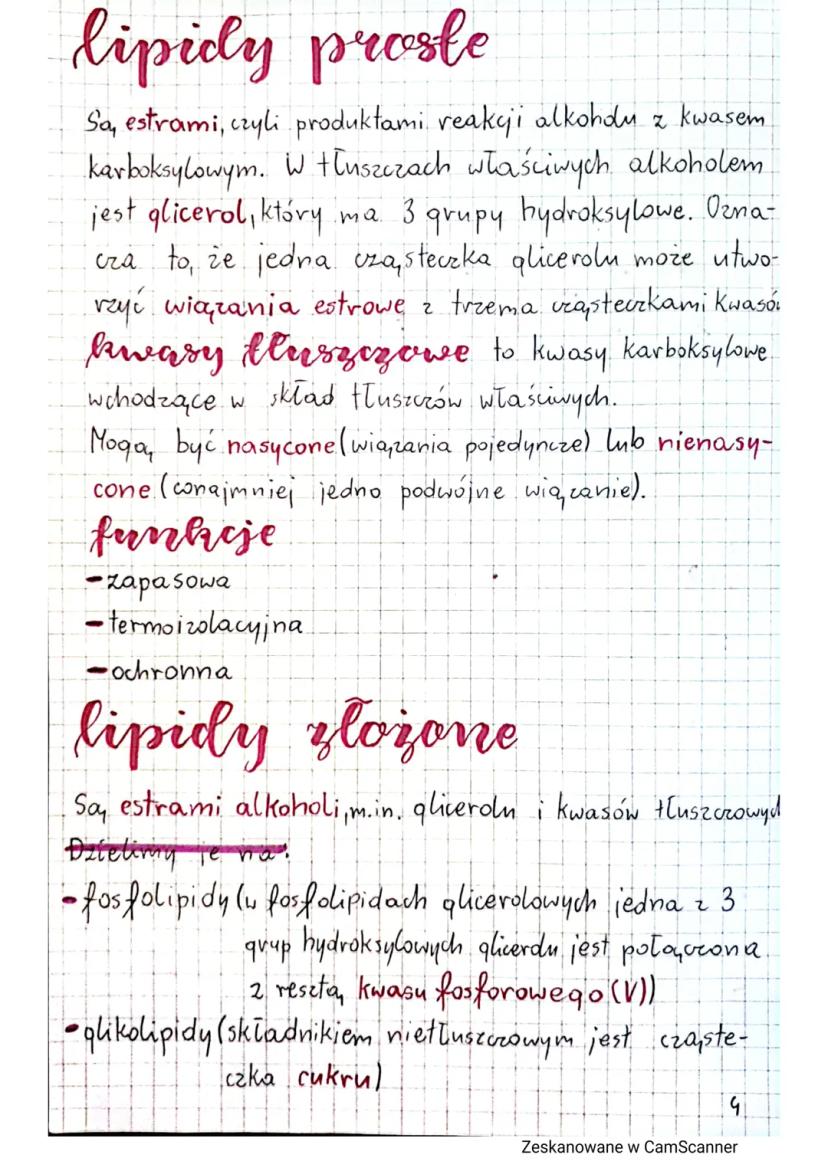 lipidy proste
Są estrami, czyli produktami reakcji alkoholu z kwasem
karboksylowym. W tłuszczach właściwych alkoholem
jest glicerol, który ma 3 grupy hydroksylowe. Ozna-
cza to, że jedna cząsteczka glicerolu może utwo-
rzyć wiązania estrowe z trzema cząsteczkami kwasów
kwasy tłuszczowe to kwasy karboksylowe
wchodzące w skład tłuszczów właściwych.
Mogą być nasycone (wiązania pojedyncze) lub nienasy-
cone (conajmniej jedno podwójne wiązanie).
funkcje
-zapasowa
-termoizolacyjna
-ochronna
lipidy złożone
Są estrami alkoholi, m.in. glicerolu i kwasów tłuszczowych
Dzielimy je na:
-fosfolipidy (w fosfolipidach glicerolowych jedna z 3
grup hydroksylowych glicerolu jest połączona
z resztą kwasu fosforowego (V))
-glikolipidy (składnikiem nietłuszczowym jest cząste-
czka cukru)
4
Zeskanowane w CamScanner